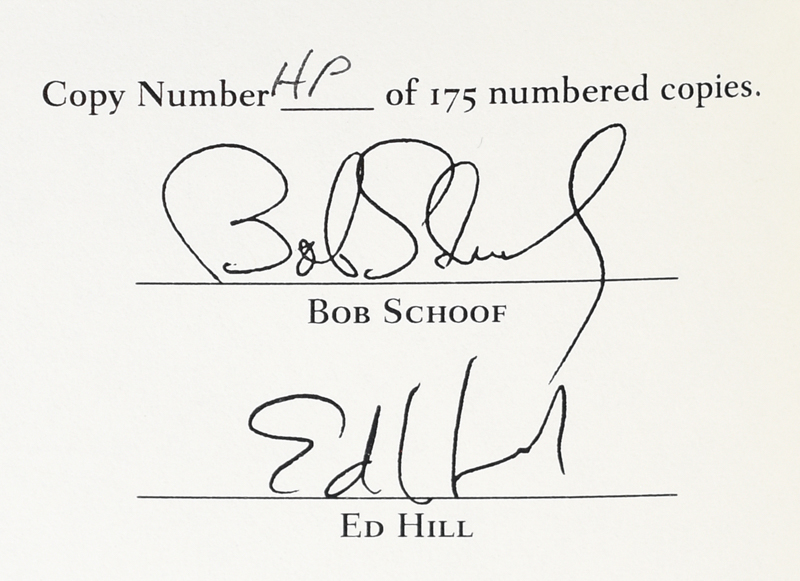 Copy Number HP of 175 numbered copies.
Bob Schoof
BOB SCHOOF
Ed Hill
ED HILL